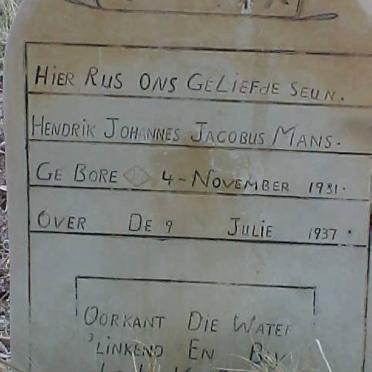 HIER RUS ONS GELIEFDE SEUN.
HENDRIK JOHANNES JACOBUS MANS.
GE BORE 4-NOVEMBER 1931.
OVER DE 9 JULIE 1937.
OORKANT DIE WATER
BLINKEND EN